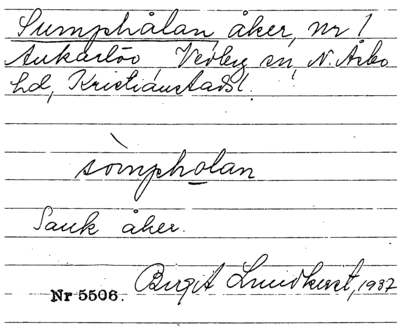 Sumphålan, åker, nr 1
Aukarlöv Vedby sn, N. Åsbo
hd, Kristianstads l.
sòmpholan
Sank åker.
Nr 5506. Birgit Lundkvist, 1937